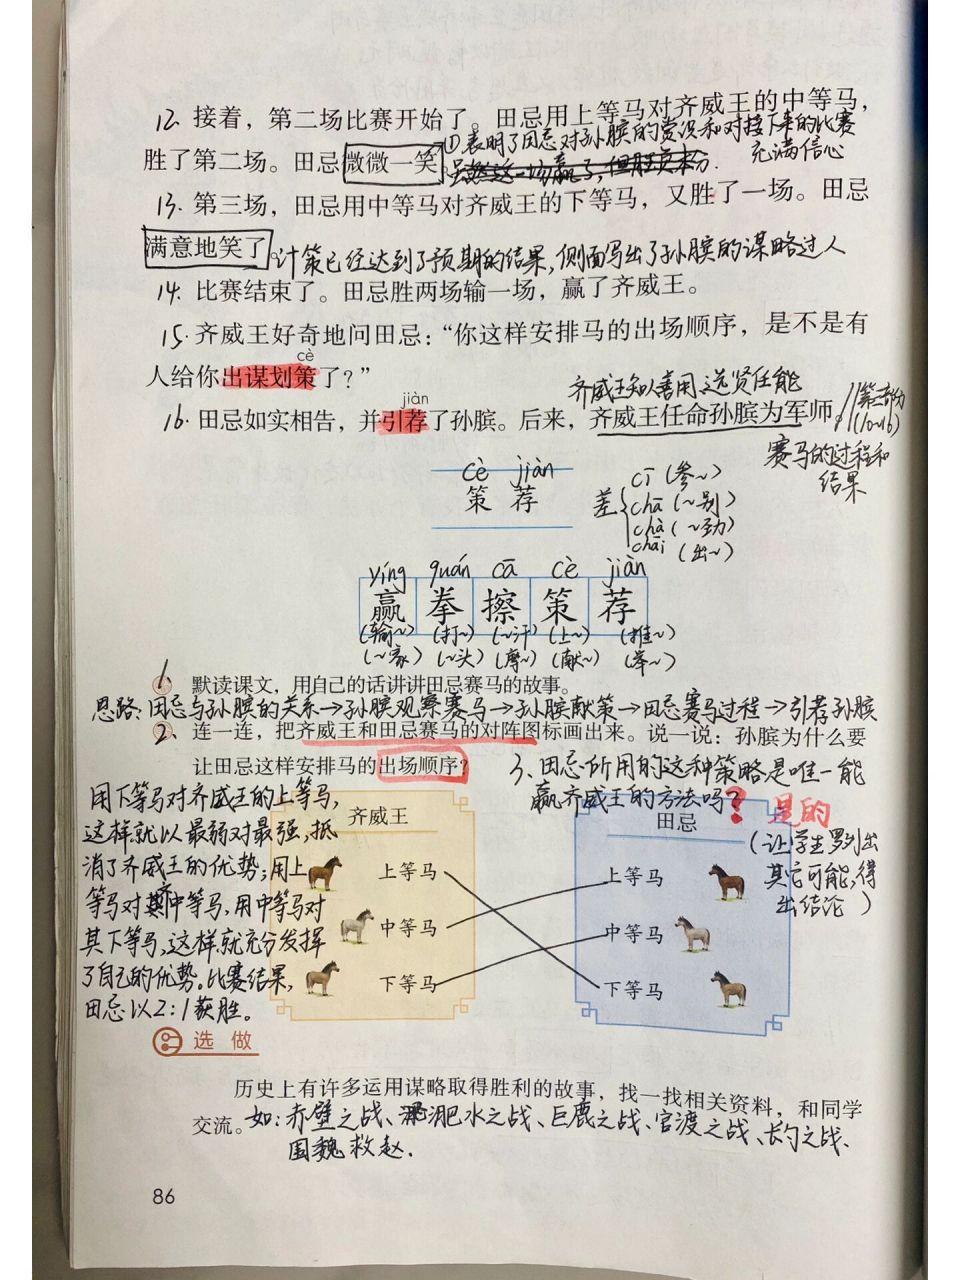 12. 接着，第二场比赛开始了。田忌用上等马对齐威王的中等马，
①表明了田忌对孙膑的赏识和对接下来的比赛
充满信心
胜了第二场。田忌微微一笑。
13. 第三场，田忌用中等马对齐威王的下等马，又胜了一场。田忌
满意地笑了。计策已经达到了预期的结果，侧面写出了孙膑的谋略过人
14. 比赛结束了。田忌胜两场输一场，赢了齐威王。
15. 齐威王好奇地问田忌：“你这样安排马的出场顺序，是不是有
cè
人给你出谋划策了？”
齐威王知人善用 选贤任能
jiàn
16. 田忌如实相告，并引荐了孙膑。后来，齐威王任命孙膑为军师。
(10~16)
赛马的过程和
结果
cè jiàn
策 荐
差
cī (参~)
chā (~别)
chà (~劲)
chāi (出~)
yíng quán cā cè jiàn
赢 拳 擦 策 荐
(输~) (打~) (~汗) (上~) (推~)
(~家) (~头) (摩~) (献~) (举~)
1. 默读课文，用自己的话讲讲田忌赛马的故事。
思路：田忌与孙膑的关系→孙膑观察赛马→孙膑献策→田忌赛马过程→引荐孙膑
2. 连一连，把齐威王和田忌赛马的对阵图标画出来。说一说：孙膑为什么要
让田忌这样安排马的出场顺序？
3、田忌所用的这种策略是唯一能
赢齐威王的方法吗？ 是的
(让学生罗列出
其它可能，得
出结论)
用下等马对齐威王的上等马，
这样就以最弱对最强，抵
消了齐威王的优势；用上
等马对其中等马，用中等马对
其下等马，这样就充分发挥
了自己的优势。比赛结果，
田忌以2：1获胜。
齐威王
上等马
中等马
下等马
田忌
上等马
中等马
下等马
选做
历史上有许多运用谋略取得胜利的故事，找一找相关资料，和同学
交流。如：赤壁之战、淝水之战、巨鹿之战、官渡之战、长勺之战、
围魏救赵.
86